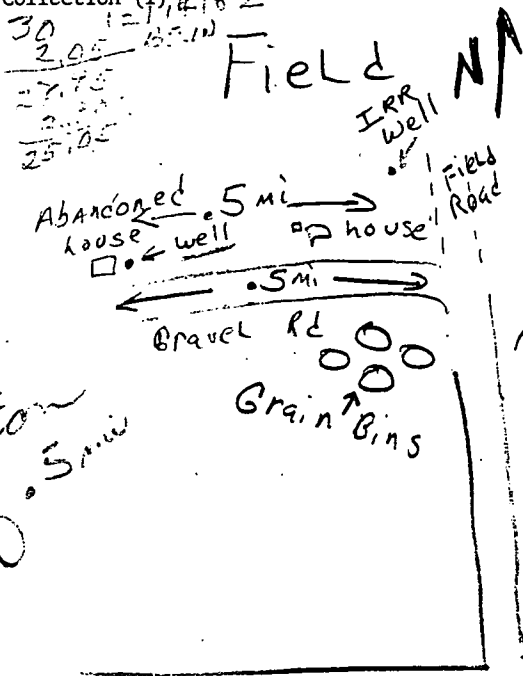 Collection (1),
30
2.05
27.95
25.05
Field
N
IRR
Well
Field
Road
Abandoned
house
.5 mi
well
house
.5 mi
Gravel Rd
Grain Bins
.5 mi